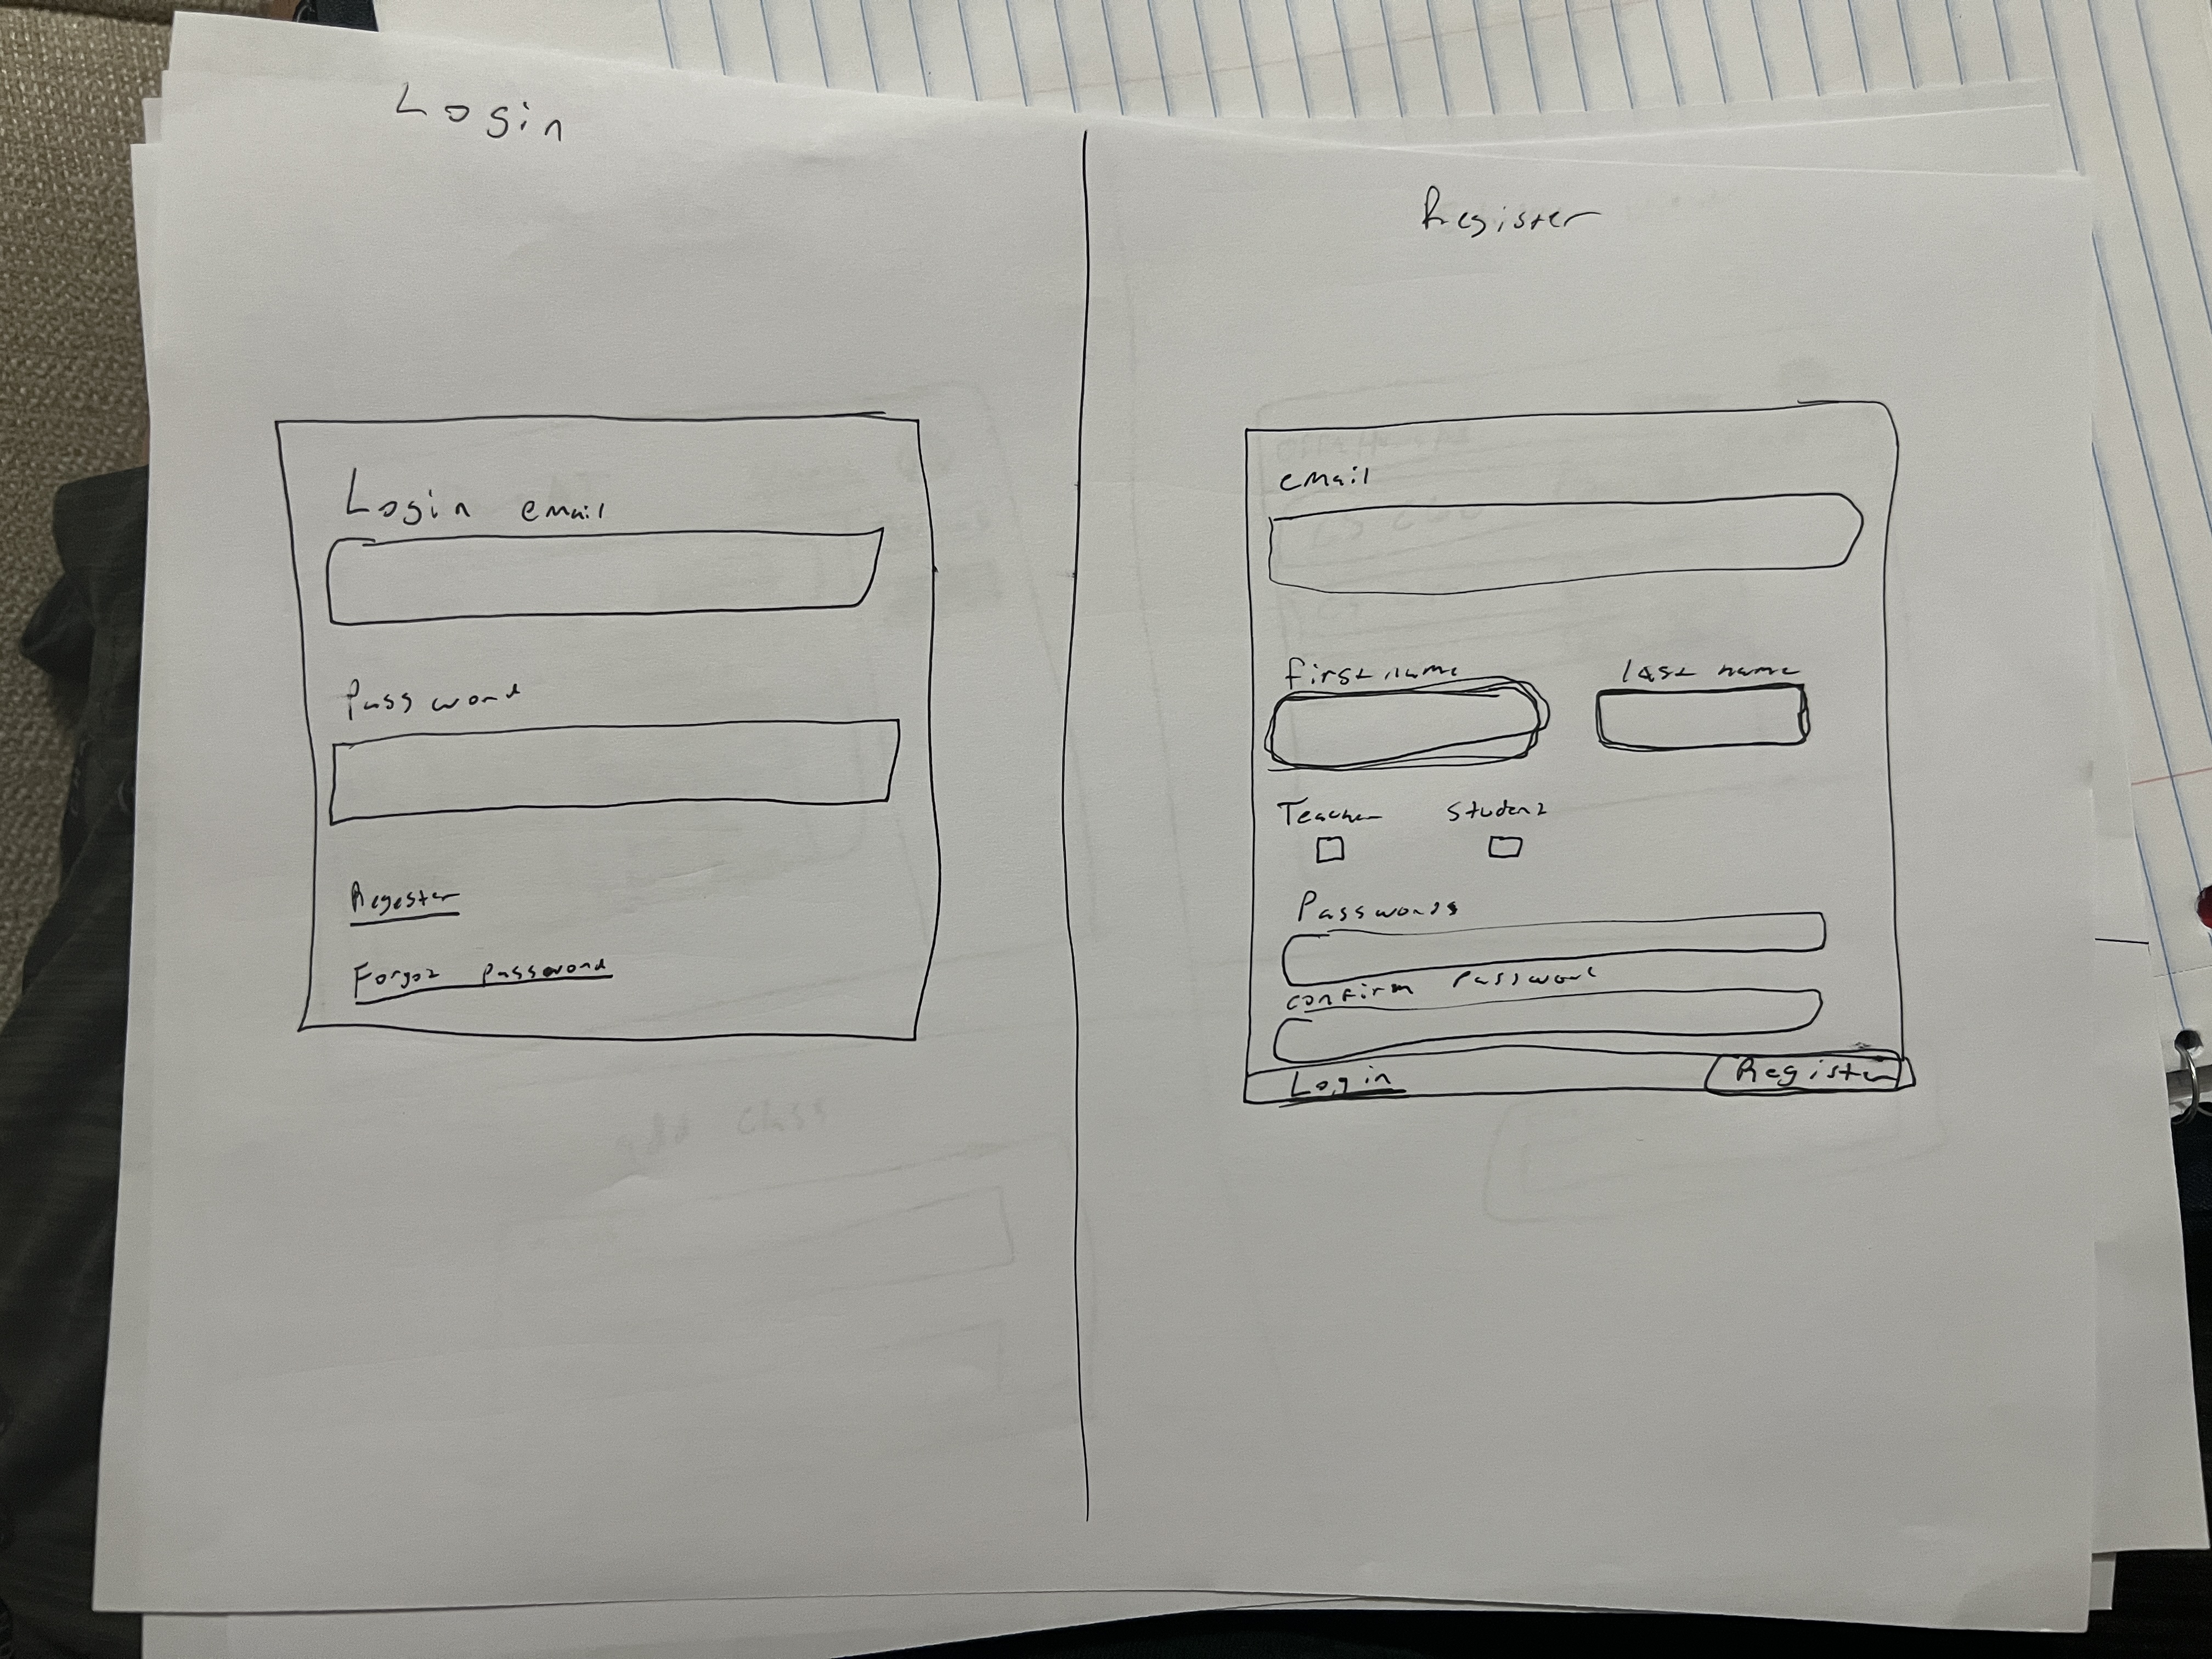 Login
Login email
Password
Register
Forgot password
Register
email
first name last name
Teacher Student
Passwords
confirm password
Login Register